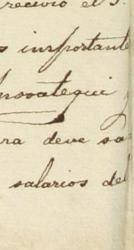 recivio el S.
s importante
novategui y
ra deve sa
salarios del